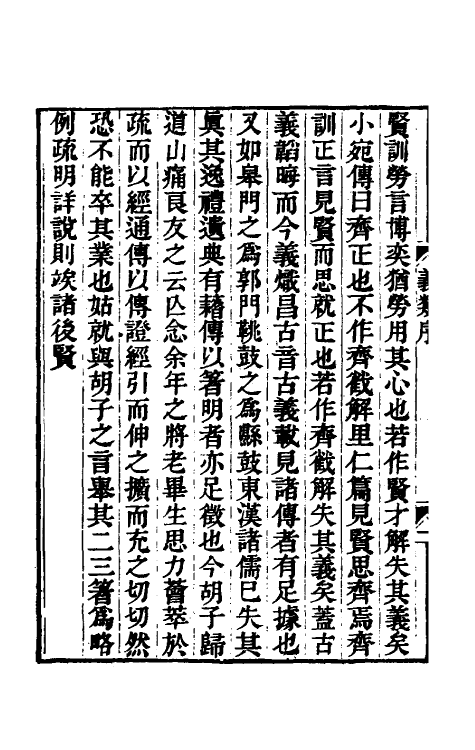 義類序
賢訓勞言博奕猶勞用其心也若作賢才解失其義矣
小宛傳曰齊正也不作齊截解里仁篇見賢思齊焉齊
訓正言見賢而思就正也若作齊截解失其義矣蓋古
義韜晦而今義熾昌古音古義載見諸傳者有足據也
又如皋門之爲郭門鞉鼓之爲縣鼓東漢諸儒已失其
眞其逸禮遺典有藉傳以箸明者亦足徵也今胡子歸
道山痛良友之云亾念余年之將老畢生思力薈萃於
疏而以經通傳以傳證經引而伸之擴而充之切切然
恐不能卒其業也姑就與胡子之言舉其二三箸爲略
例疏明詳說則竢諸後賢